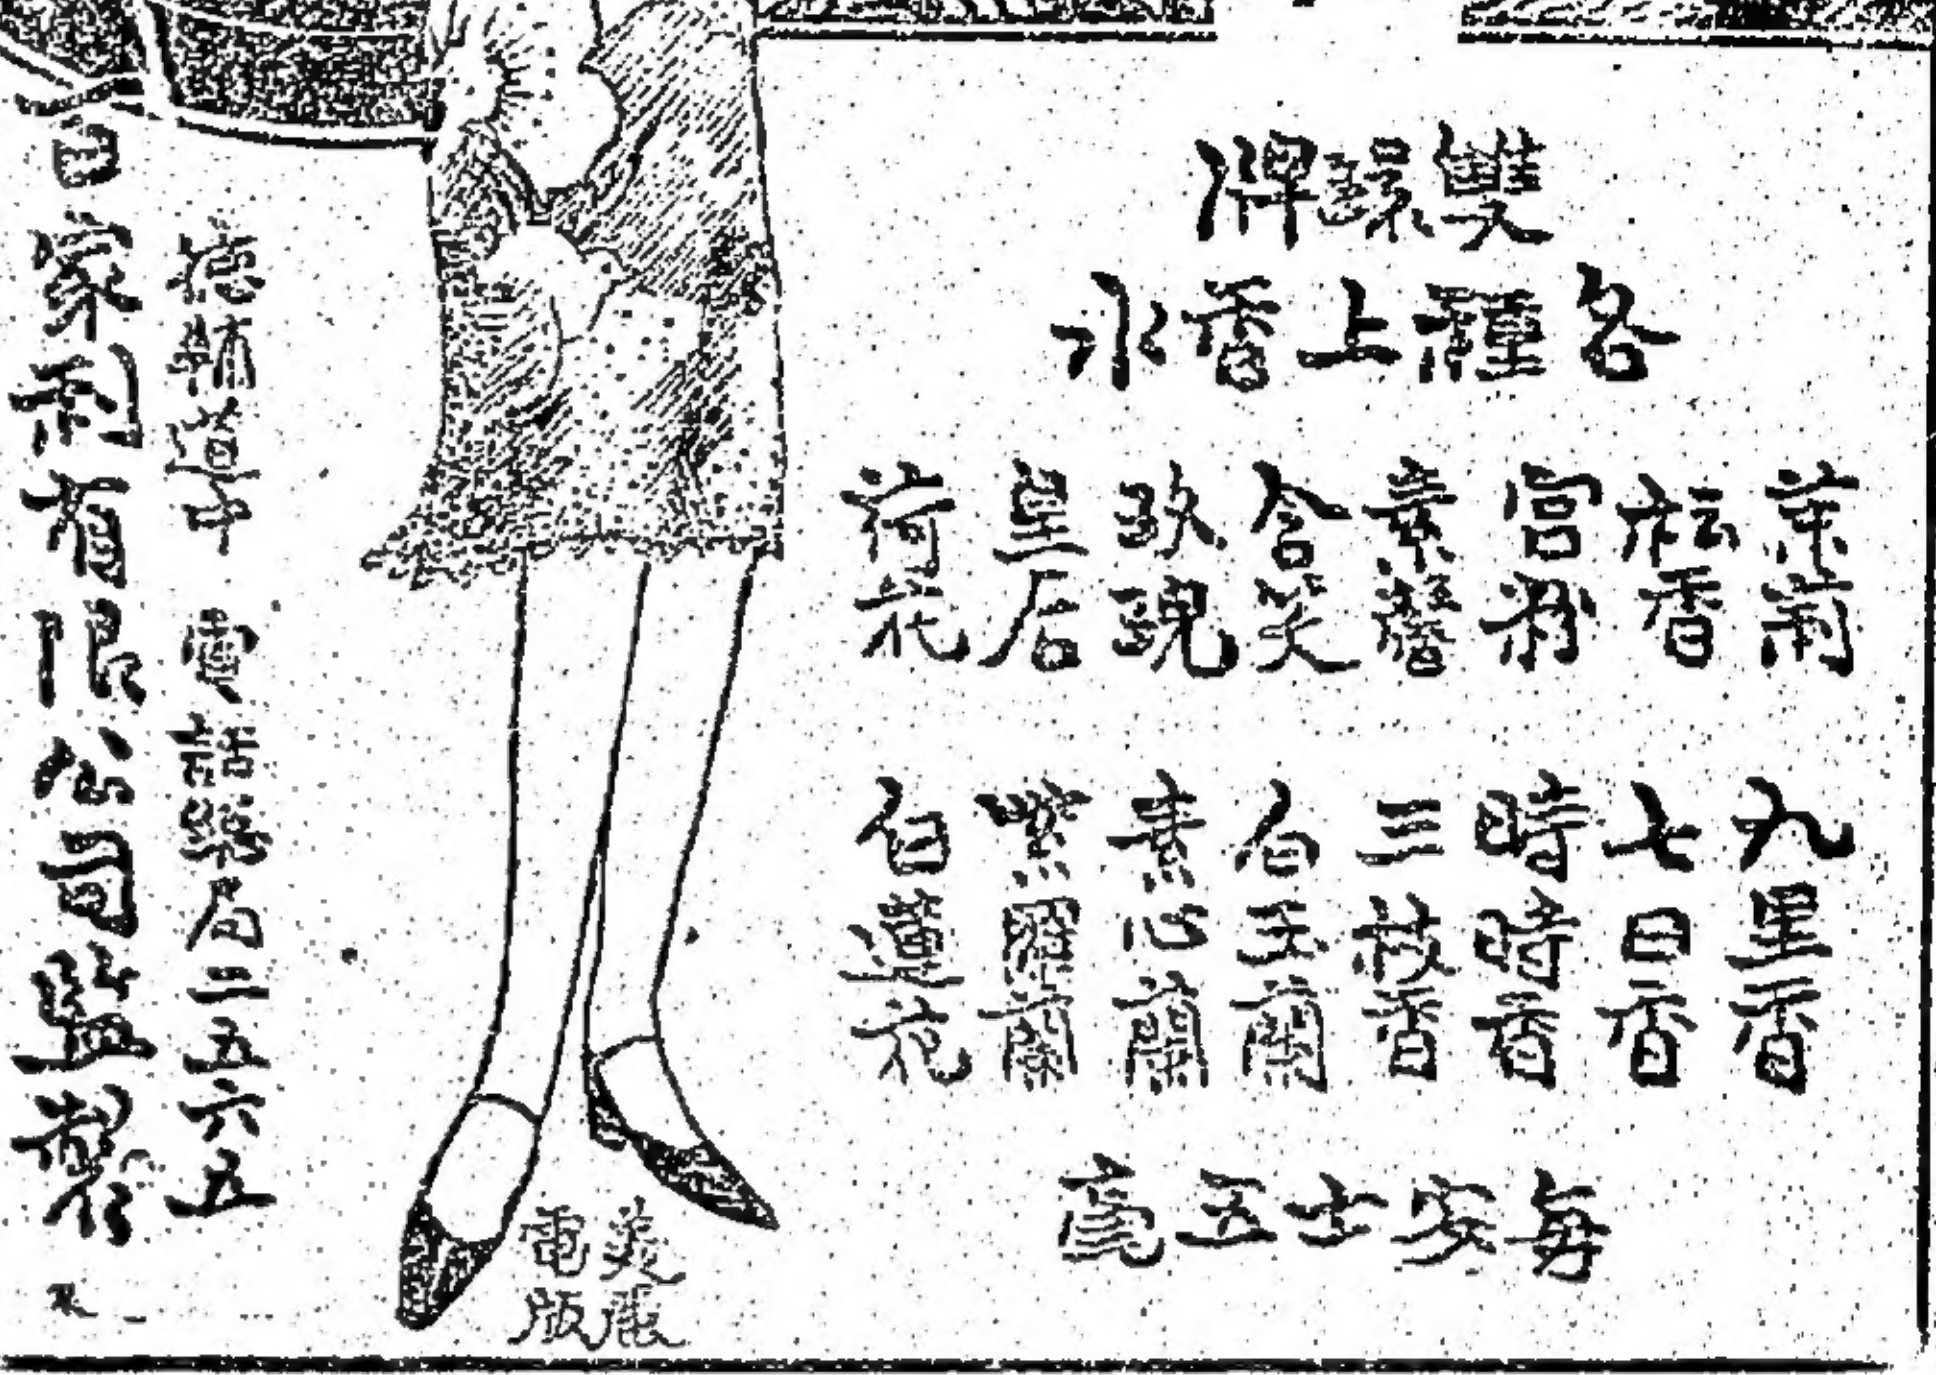 雙環牌
各種上香水
茉莉
松香
宮粉
素馨
含笑
玫瑰
皇后
荷花
九里香
七日香
時時香
三枝香
白玉蘭
素心蘭
紫羅蘭
白蓮花
每安士五
德輔道中 電話總局三五六五
百家利有限公司監製
美麗
電版